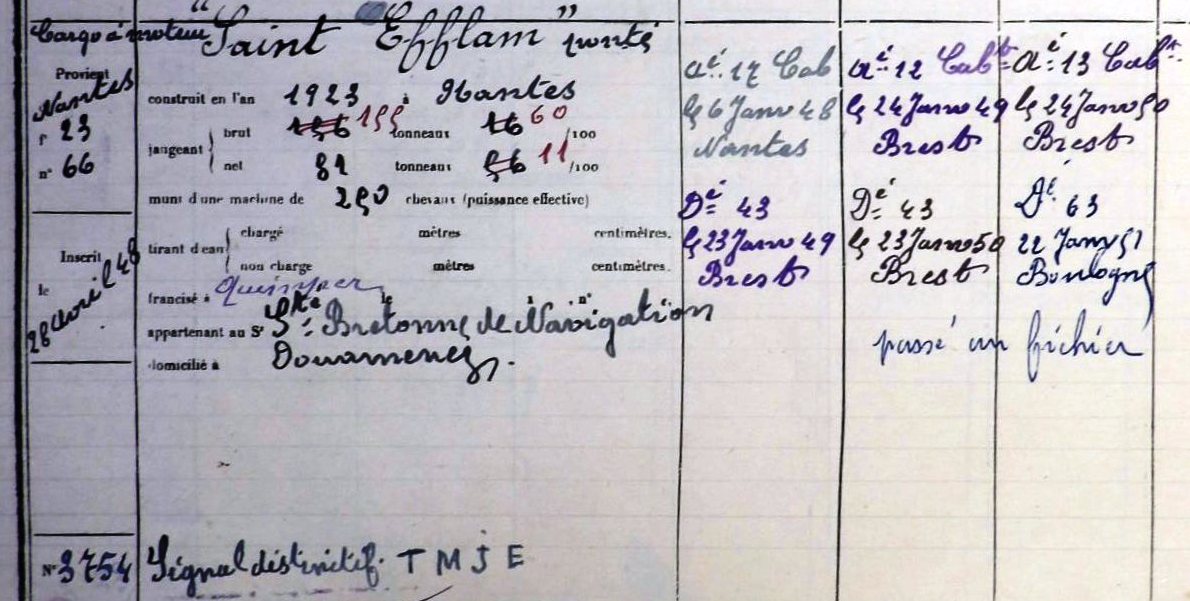 Cargo à moteur "Saint Efflam" ponté
Provient
Nantes
f° 23
n° 66
Inscrit
le
28 Avril 48
construit en l'an 1923 à Nantes
jaugeant
brut 156 155 tonneaux 16 60 /100
net 81 tonneaux 56 11 /100
muni d'une machine de 250 chevaux (puissance effective)
tirant d'eau
chargé mètres centimètres.
non chargé mètres centimètres.
francisé à Quimper le n°
appartenant au Sr Sté Bretonne de Navigation
domicilié à Douarnenez.
N° 3754 Signal distinctif. T M J E
Aé 17 Cab
le 6 Janv 48
Nantes
Dé 43
le 23 Janv 49
Brest
Aé 12 Cabt
le 24 Janv 49
Brest
Dé 43
le 23 Janv 50
Brest
Aé 13 Cabt
le 24 Janv 50
Brest
Dé 63
22 Janv 51
Boulogne
passé au fichier